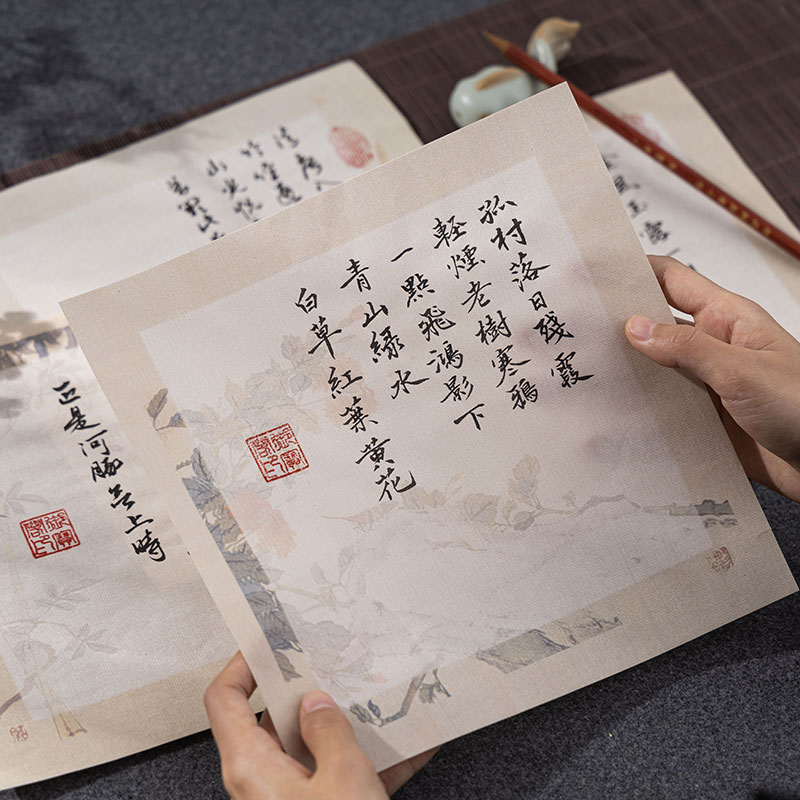 孤村落日殘霞
輕煙老樹寒鴉
一點飛鴻影下
青山緑水
白草紅葉黄花
正是河豚欲上時
金風玉露一